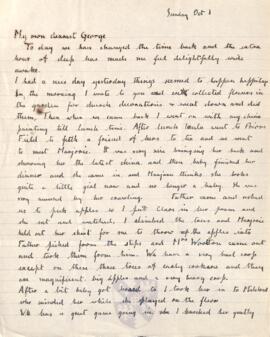 Sunday Oct 1
My own dearest George
To day we has changed the time back and the extra
hour of sleep has made me feel delightfully wide
awake.
I had a nice day yesterday things seemed to happen happily
In the morning I wrote to you and collected flowers in
the garden for church decorations & went down and did
them. Then when I came back I went on with my china
painting till lunch time. After lunch went to Prior
Field to a friend of hers to tea and we went
to meet Marjorie. It was very nice bringing her back and
showing her the latest china and then baby finished her
dinner and she came in and Marjorie thinks she looks
quite a little girl now and no longer a baby. She was
very amused by her crawling. Father came and asked
us to pick apples so I put Clare in her pram and
she sat and watched. I climbed the trees and Marjorie
held out her skirt for me to throw up the apples into
Father picked from the steps and Mrs Woolton came out
and took them from him. We have a very bad crop
except on these three trees of early cookers and they
are magnificent big apples and a very heavy crop.
After a bit baby got bored so I took her in to Mildred
who minded her while she played on the floor
We has a great game going in when I basked her gently